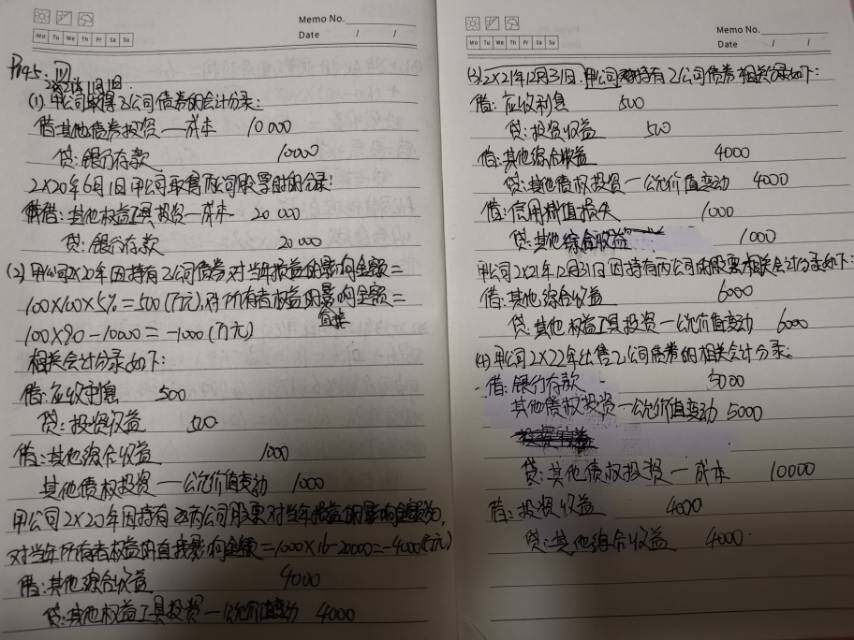 Memo No.
Mo Tu We Th Fr Sa Su
Date / /
P145: [1]
2X20年1月1日.
(1) 甲公司取得乙公司债券的会计分录:
借:其他债券投资—成本 10000
贷:银行存款 10000
2X20年6月1日甲公司取得丙公司股票时的分录:
借:其他权益工具投资—成本 20000
贷:银行存款 20000
(2) 甲公司2X20年因持有乙公司债券对当年损益的影响金额=
100X100X5%=500(万元),对所有者权益的直接影响金额=
100X90-10000=-1000(万元)
相关会计分录如下:
借:应收利息 500
贷:投资收益 500
借:其他综合收益 1000
其他债权投资—公允价值变动 1000
甲公司2X20年因持有丙公司股票对当年损益的影响金额为0,
对当年所有者权益的直接影响金额=1000X16-20000=-4000(万元)
借:其他综合收益 4000
贷:其他权益工具投资—公允价值变动 4000
Memo No.
Mo Tu We Th Fr Sa Su
Date / /
(3) 2X21年12月31日,甲公司持有乙公司债券相关分录如下:
借:应收利息 500
贷:投资收益 500
借:其他综合收益 4000
贷:其他债权投资—公允价值变动 4000
借:信用减值损失 1000
贷:其他综合收益 1000
甲公司2X21年12月31日因持有丙公司的股票相关会计分录如下:
借:其他综合收益 6000
贷:其他权益工具投资—公允价值变动 6000
(4) 甲公司2X22年出售乙公司债券的相关会计分录:
借:银行存款 5000
其他债权投资—公允价值变动 5000
贷:其他债权投资—成本 10000
借:投资收益 4000
贷:其他综合收益 4000